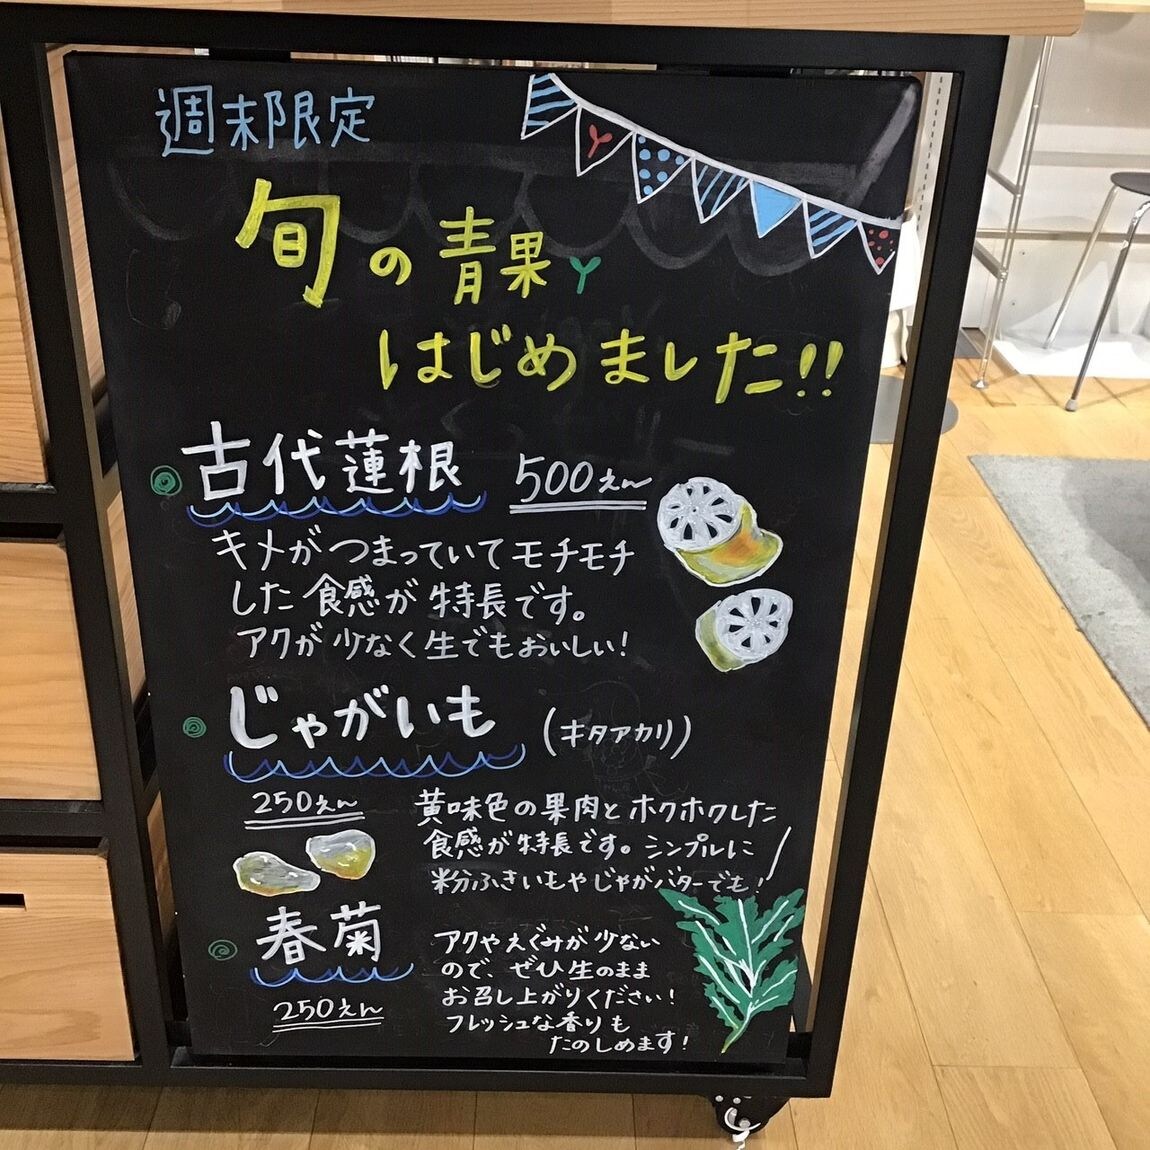 週末限定
旬の青果
はじめました!!
古代蓮根 500えん
キメがつまっていてモチモチ
した食感が特長です。
アクが少なく生でもおいしい!
じゃがいも (キタアカリ)
250えん
黄味色の果肉とホクホクした
食感が特長です。シンプルに
粉ふきいもやじゃがバターでも!
春菊
250えん
アクやえぐみが少ない
ので、ぜひ生のまま
お召し上がりください!
フレッシュな香りも
たのしめます!